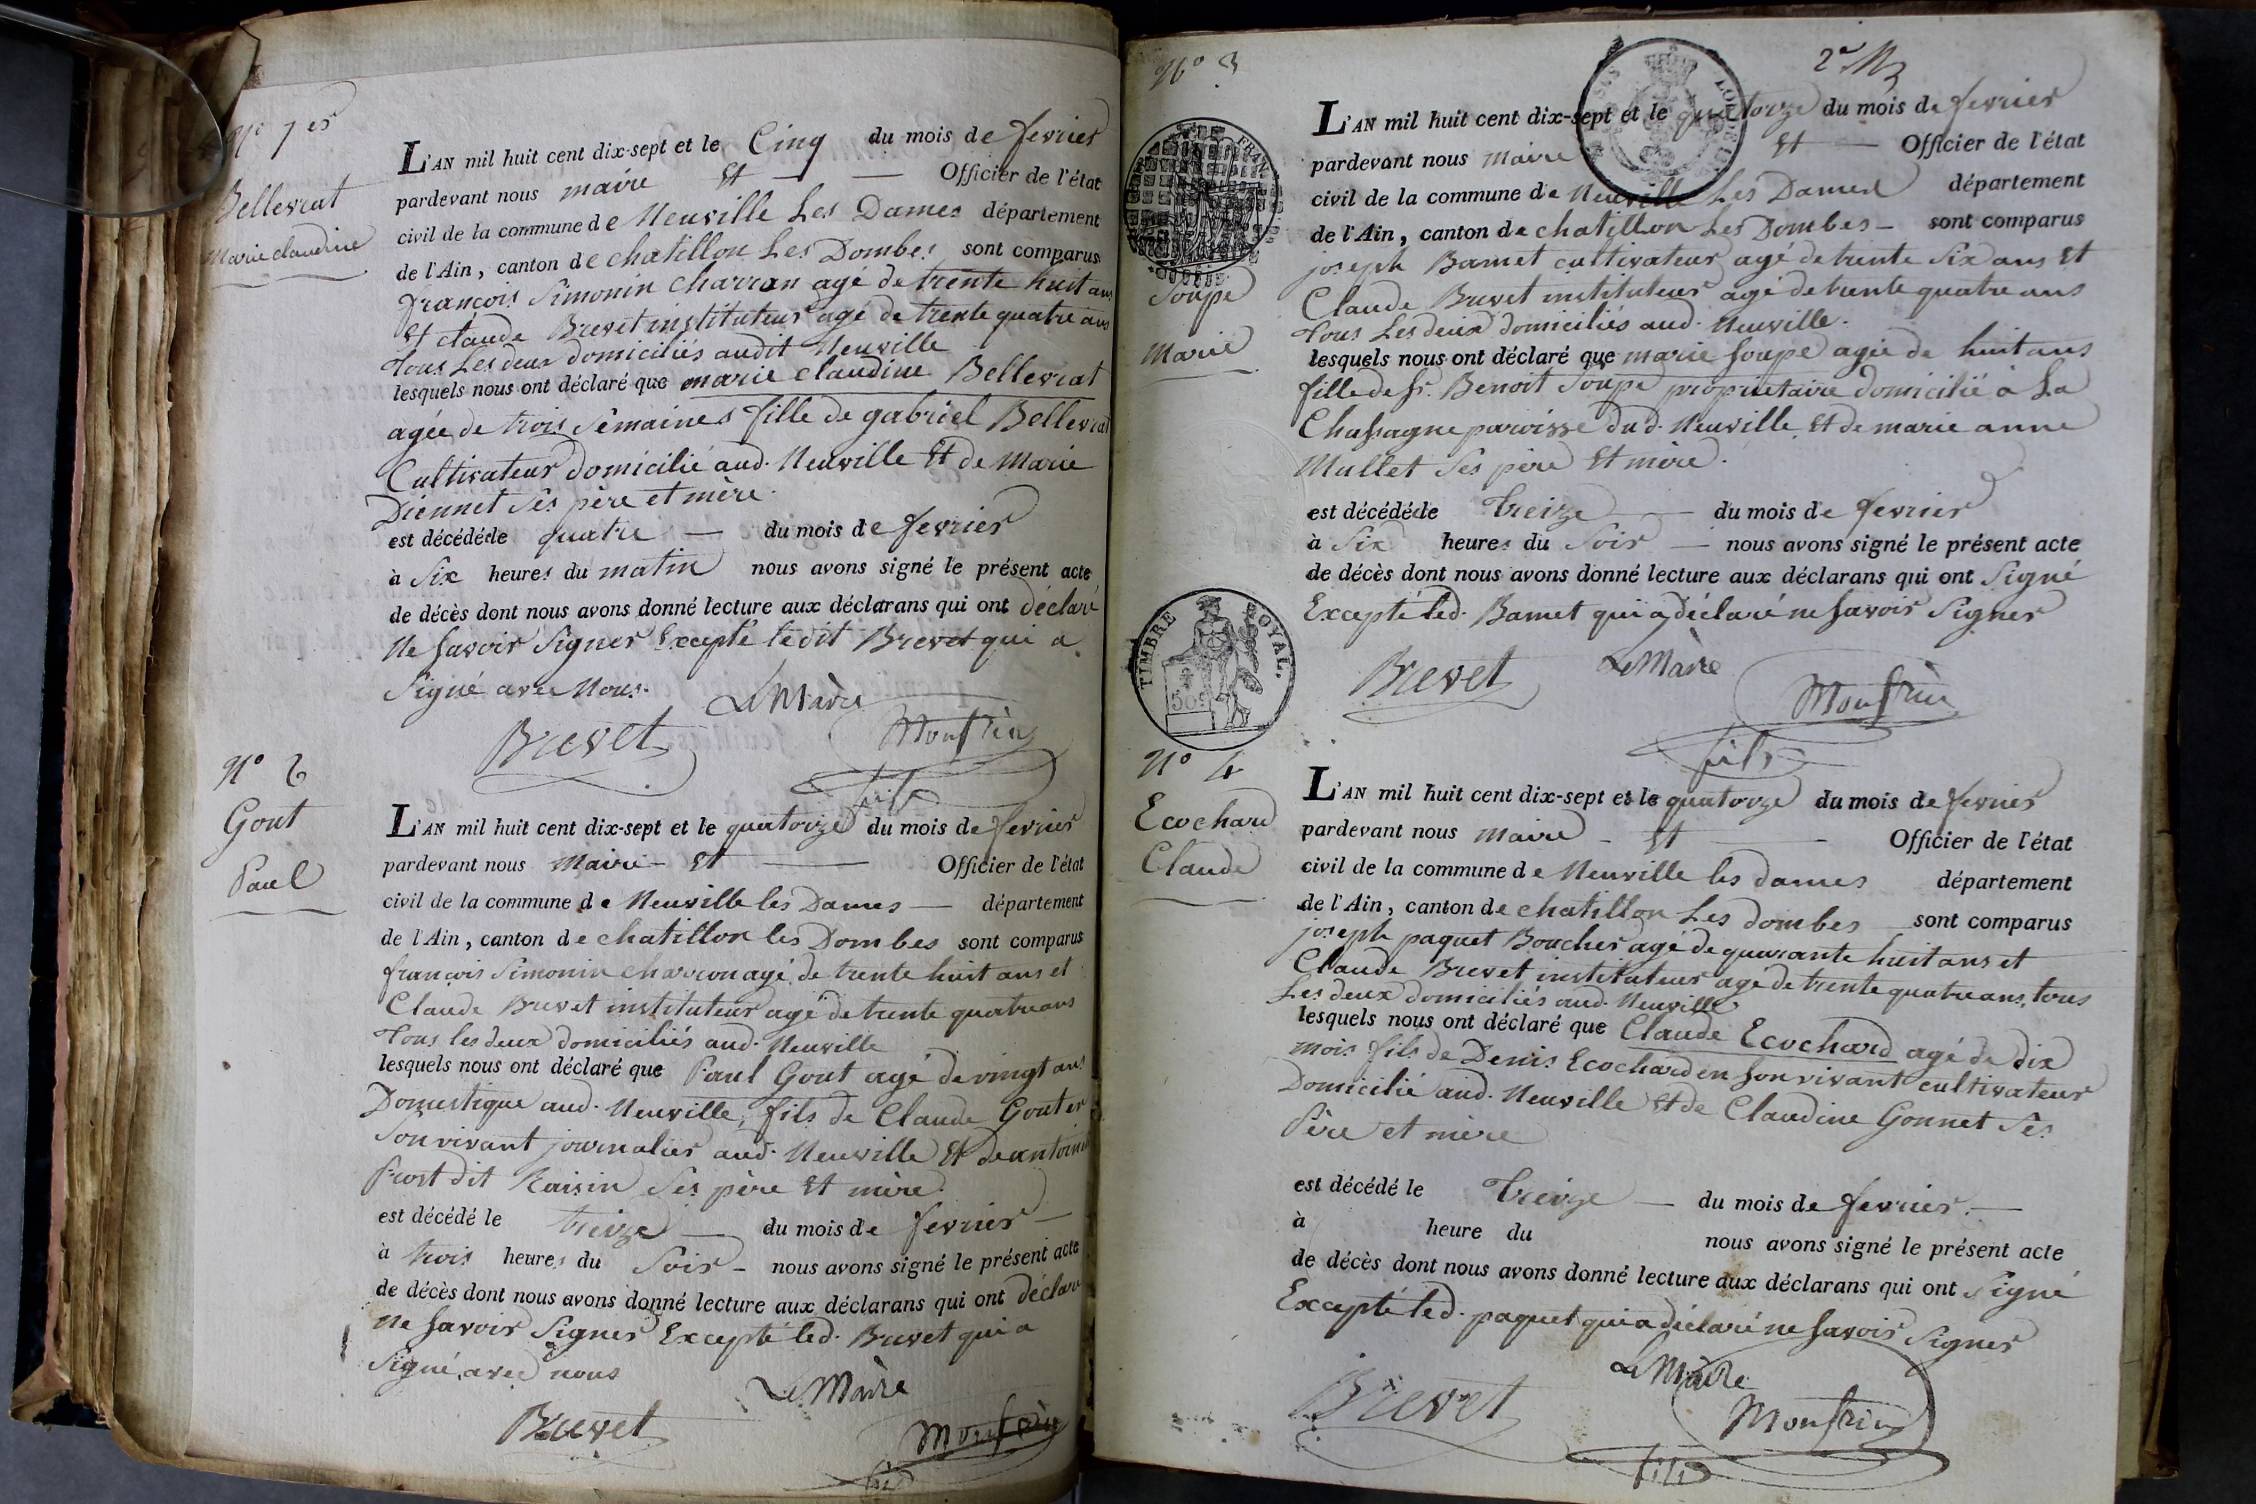 N° 1er
Bellevrat
Marie claudine
L'AN mil huit cent dix-sept et le Cinq du mois de fevrier
pardevant nous maire Et — — Officier de l'état
civil de la commune de Neuville Les Dames département
de l'Ain, canton de chatillon Les Dombes sont comparus
françois Simonin charron agé de trente huit ans
Et claude Brevet instituteur agé de trente quatre ans
tous Les deux domiciliés audit Neuville
lesquels nous ont déclaré que marie claudine Bellevrat
agée de trois Semaines fille de gabriel Bellevrat
Cultivateur domicilié aud. Neuville Et de Marie
Diennet Ses père et mère.
est décédé le quatre — du mois de fevrier
à Six heures du matin nous avons signé le présent acte
de décès dont nous avons donné lecture aux déclarans qui ont déclaré
Ne Savoir Signer Excepté ledit Brevet qui a
Signé avec Nous.
Le Maire
Brevet Monfrin
fils
N° 2
Gout
Paul
L'AN mil huit cent dix-sept et le quatorze du mois de fevrier
pardevant nous Maire — Et — Officier de l'état
civil de la commune de Neuville les Dames — département
de l'Ain, canton de chatillon les Dombes sont comparus
françois Simonin charron agé de trente huit ans et
Claude Brevet instituteur agé de trente quatre ans
tous les deux domiciliés aud. Neuville
lesquels nous ont déclaré que Paul Gout agé de vingt ans
Domestique aud. Neuville, fils de Claude Gout en
Son vivant journalier aud. Neuville Et de antoine
Prost dit Raisin Ses père Et mère.
est décédé le treize — du mois de fevrier —
à trois heures du Soir — nous avons signé le présent acte
de décès dont nous avons donné lecture aux déclarans qui ont déclaré
ne Savoir Signer Excepté led. Brevet qui a
Signé avec nous
Le Maire
Brevet Monfrin
fils
N° 3
2e
Soupe
Marie
L'AN mil huit cent dix-sept et le quatorze du mois de fevrier
pardevant nous maire Et — Officier de l'état
civil de la commune de Neuville Les Dames département
de l'Ain, canton de chatillon Les Dombes — sont comparus
joseph Bamet cultivateur agé de trente Six ans Et
Claude Brevet instituteur agé de trente quatre ans
tous Les deux domiciliés aud. Neuville.
lesquels nous ont déclaré que marie Soupe agée de huit ans
fille de Sr. Benoit Soupe proprietaire domicilié à La
Chassagne paroisse dud. Neuville, Et de marie anne
Mullet Ses père Et mère.
est décédé le treize — du mois de fevrier
à Six heures du Soir — nous avons signé le présent acte
de décès dont nous avons donné lecture aux déclarans qui ont Signé
Excepté led. Bamet qui a déclaré ne Savoir Signer
TIMBRE ROYAL.
50c
Le Maire
Brevet Monfrin
fils
N° 4
Ecochard
Claude
L'AN mil huit cent dix-sept et le quatorze du mois de fevrier
pardevant nous maire — Et — Officier de l'état
civil de la commune de Neuville les dames département
de l'Ain, canton de chatillon Les dombes sont comparus
joseph paquet Boucher agé de quarante huit ans et
Claude Brevet instituteur agé de trente quatre ans, tous
Les deux domiciliés aud. Neuville
lesquels nous ont déclaré que Claude Ecochard agé de dix
mois fils de Denis Ecochard en Son vivant cultivateur
Domicilié aud. Neuville Et de Claudine Gonnet Ses
Père et mère
est décédé le treize — du mois de fevrier. —
à heure du nous avons signé le présent acte
de décès dont nous avons donné lecture aux déclarans qui ont Signé
Excepté led. paquet qui a déclaré ne Savoir Signer
Le Maire
Brevet Monfrin
fils